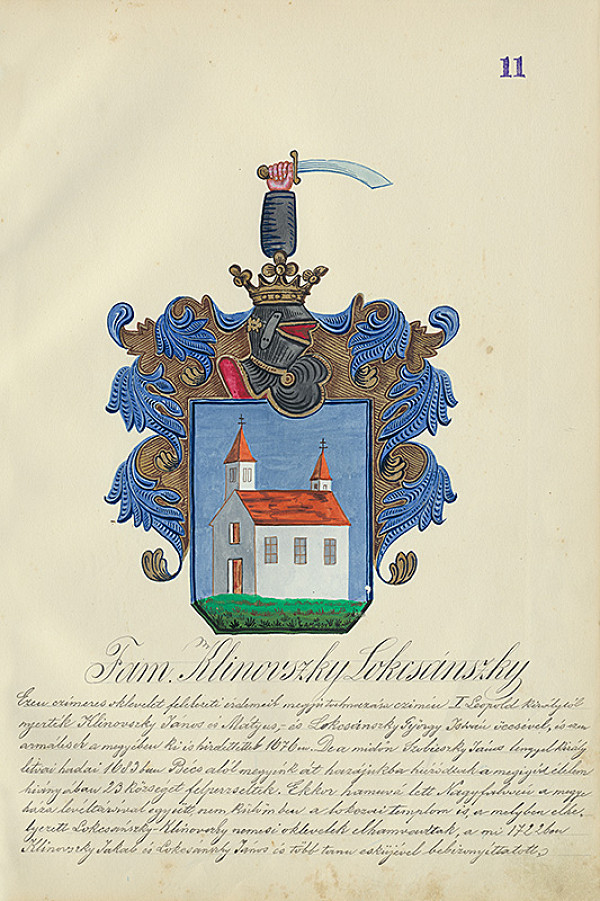 11
Fam. Klinovszky Lokcsánszky
Ezen czimeres oklevelet felebbeti érdemeik megjutalmazása czimén I. Leopold királytól
nyerték Klinovszky János és Mátyus, és Lokcsánszky György István öccsével, és ezen
armalisok a megyében ki is hirdettettek 1676ban. De a midőn Szobieszky János lengyel király
litvai hadai 1683ban Bécs alól megyénk át hazájukba húzódtak a megígért élelem
hiányában 23 községet felperzselték. Ekkor hamuvá lett Nagyfaluban a megye
háza levéltárával együtt, nem külömben a lokczai templom is, a melyben elhe-
lyezett Lokcsánszky-Klinovszky nemesi oklevelek elhamvadtak, a mi 1722ben
Klinovszky Jakab és Lokcsánszky János és több tanu esküjével bebizonyittatott.